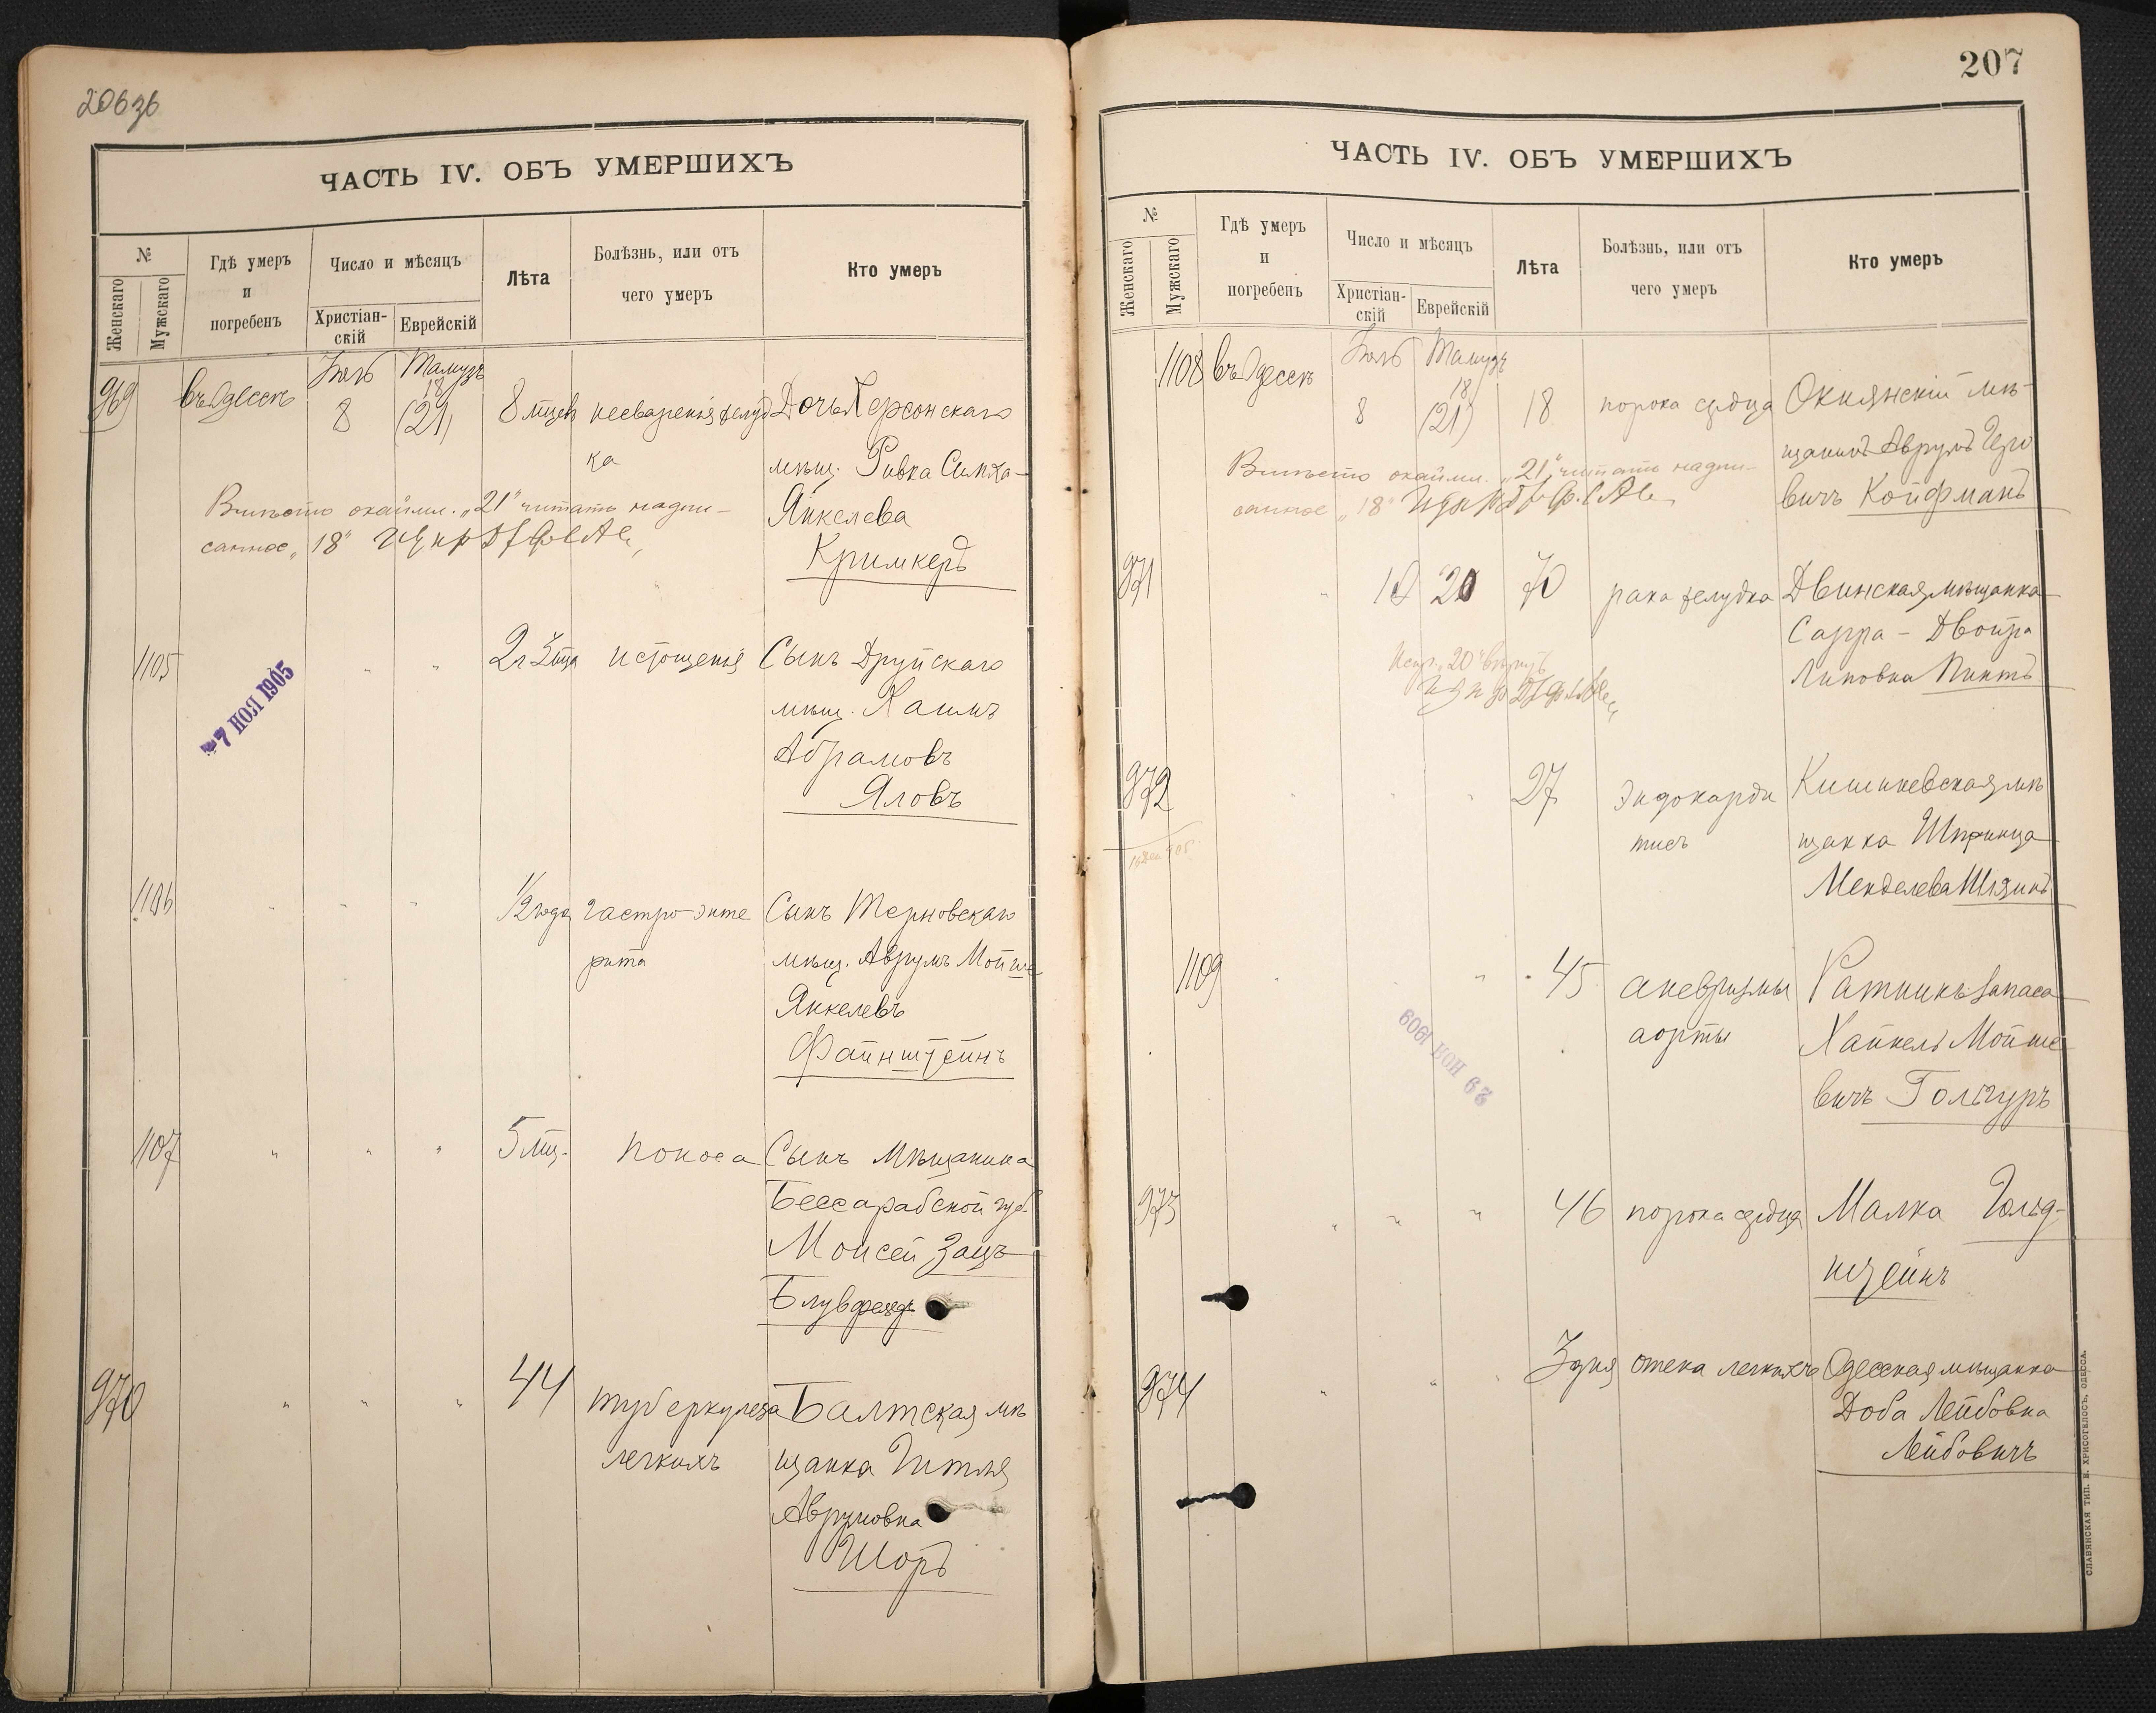 206 зб
ЧАСТЬ IV. ОБЪ УМЕРШИХЪ
№
Женскаго
Мужскаго
Гдѣ умеръ
и
погребенъ
Число и мѣсяцъ
Христіан-
скій
Еврейскій
Лѣта
Болѣзнь, или отъ
чего умеръ
Кто умеръ
Іюль Тамузъ
969 въ Одессѣ 8 18 (21) 8 мцевъ несваренія желуд Дочь Херсонскаго
ка мѣщ. Ривка Симха-
Вмѣсто окаймл. „21" читать надпи- Янкелева
санное „18"
Кримкеръ
1105 " " 2 г 3 мца истощенія Сынъ Друйскаго
7 НОЯ 1905
мѣщ. Хаимъ
Абрамовъ
Яловъ
1106 " " " 1/2 года гастро-энте Сынъ Терновскаго
рита мѣщ. Аврумъ Мойше
Янкелевъ
Файнштейнъ
1107 " " " 5 мц. поноса Сынъ мѣщанина
Бессарабской губ.
Моисей Зацъ
970 " " " 44 туберкулеза Балтская мѣ
легкихъ щанка Гитля
Аврумовна
Шоръ
207
ЧАСТЬ IV. ОБЪ УМЕРШИХЪ
№
Женскаго
Мужскаго
Гдѣ умеръ
и
погребенъ
Число и мѣсяцъ
Христіан-
скій
Еврейскій
Лѣта
Болѣзнь, или отъ
чего умеръ
Кто умеръ
Іюль Тамузъ
1108 въ Одессѣ 8 18 (21) 18 порока сердца мѣ-
щанинъ Аврумъ Гер
Вмѣсто окаймл. „21" читать надпи-
санное „18" вичъ Койфманъ
971 " 10 20 70 рака желудка Двинская мѣщанка
Сарра - Двойра
Липовна Пинтъ
972 " " " 27 эндокарди Кишиневская мѣ
тисъ щанка Шпринца
Менделева
1109 " " " 45 аневризмы Ратникъ запаса
аорты Хаикель Мойше
вичъ Гольгуръ
29 НОЯ 1909
973 " " " 46 порока сердца Малка Гольд-
штейнъ
974 " " " 3 дня отека легкихъ Одесская мѣщанка
Доба Лейбовна
Лейбовичъ
СЛАВЯНСКАЯ ТИП. Н. ХРИСОГЕЛОСЪ, ОДЕССА.